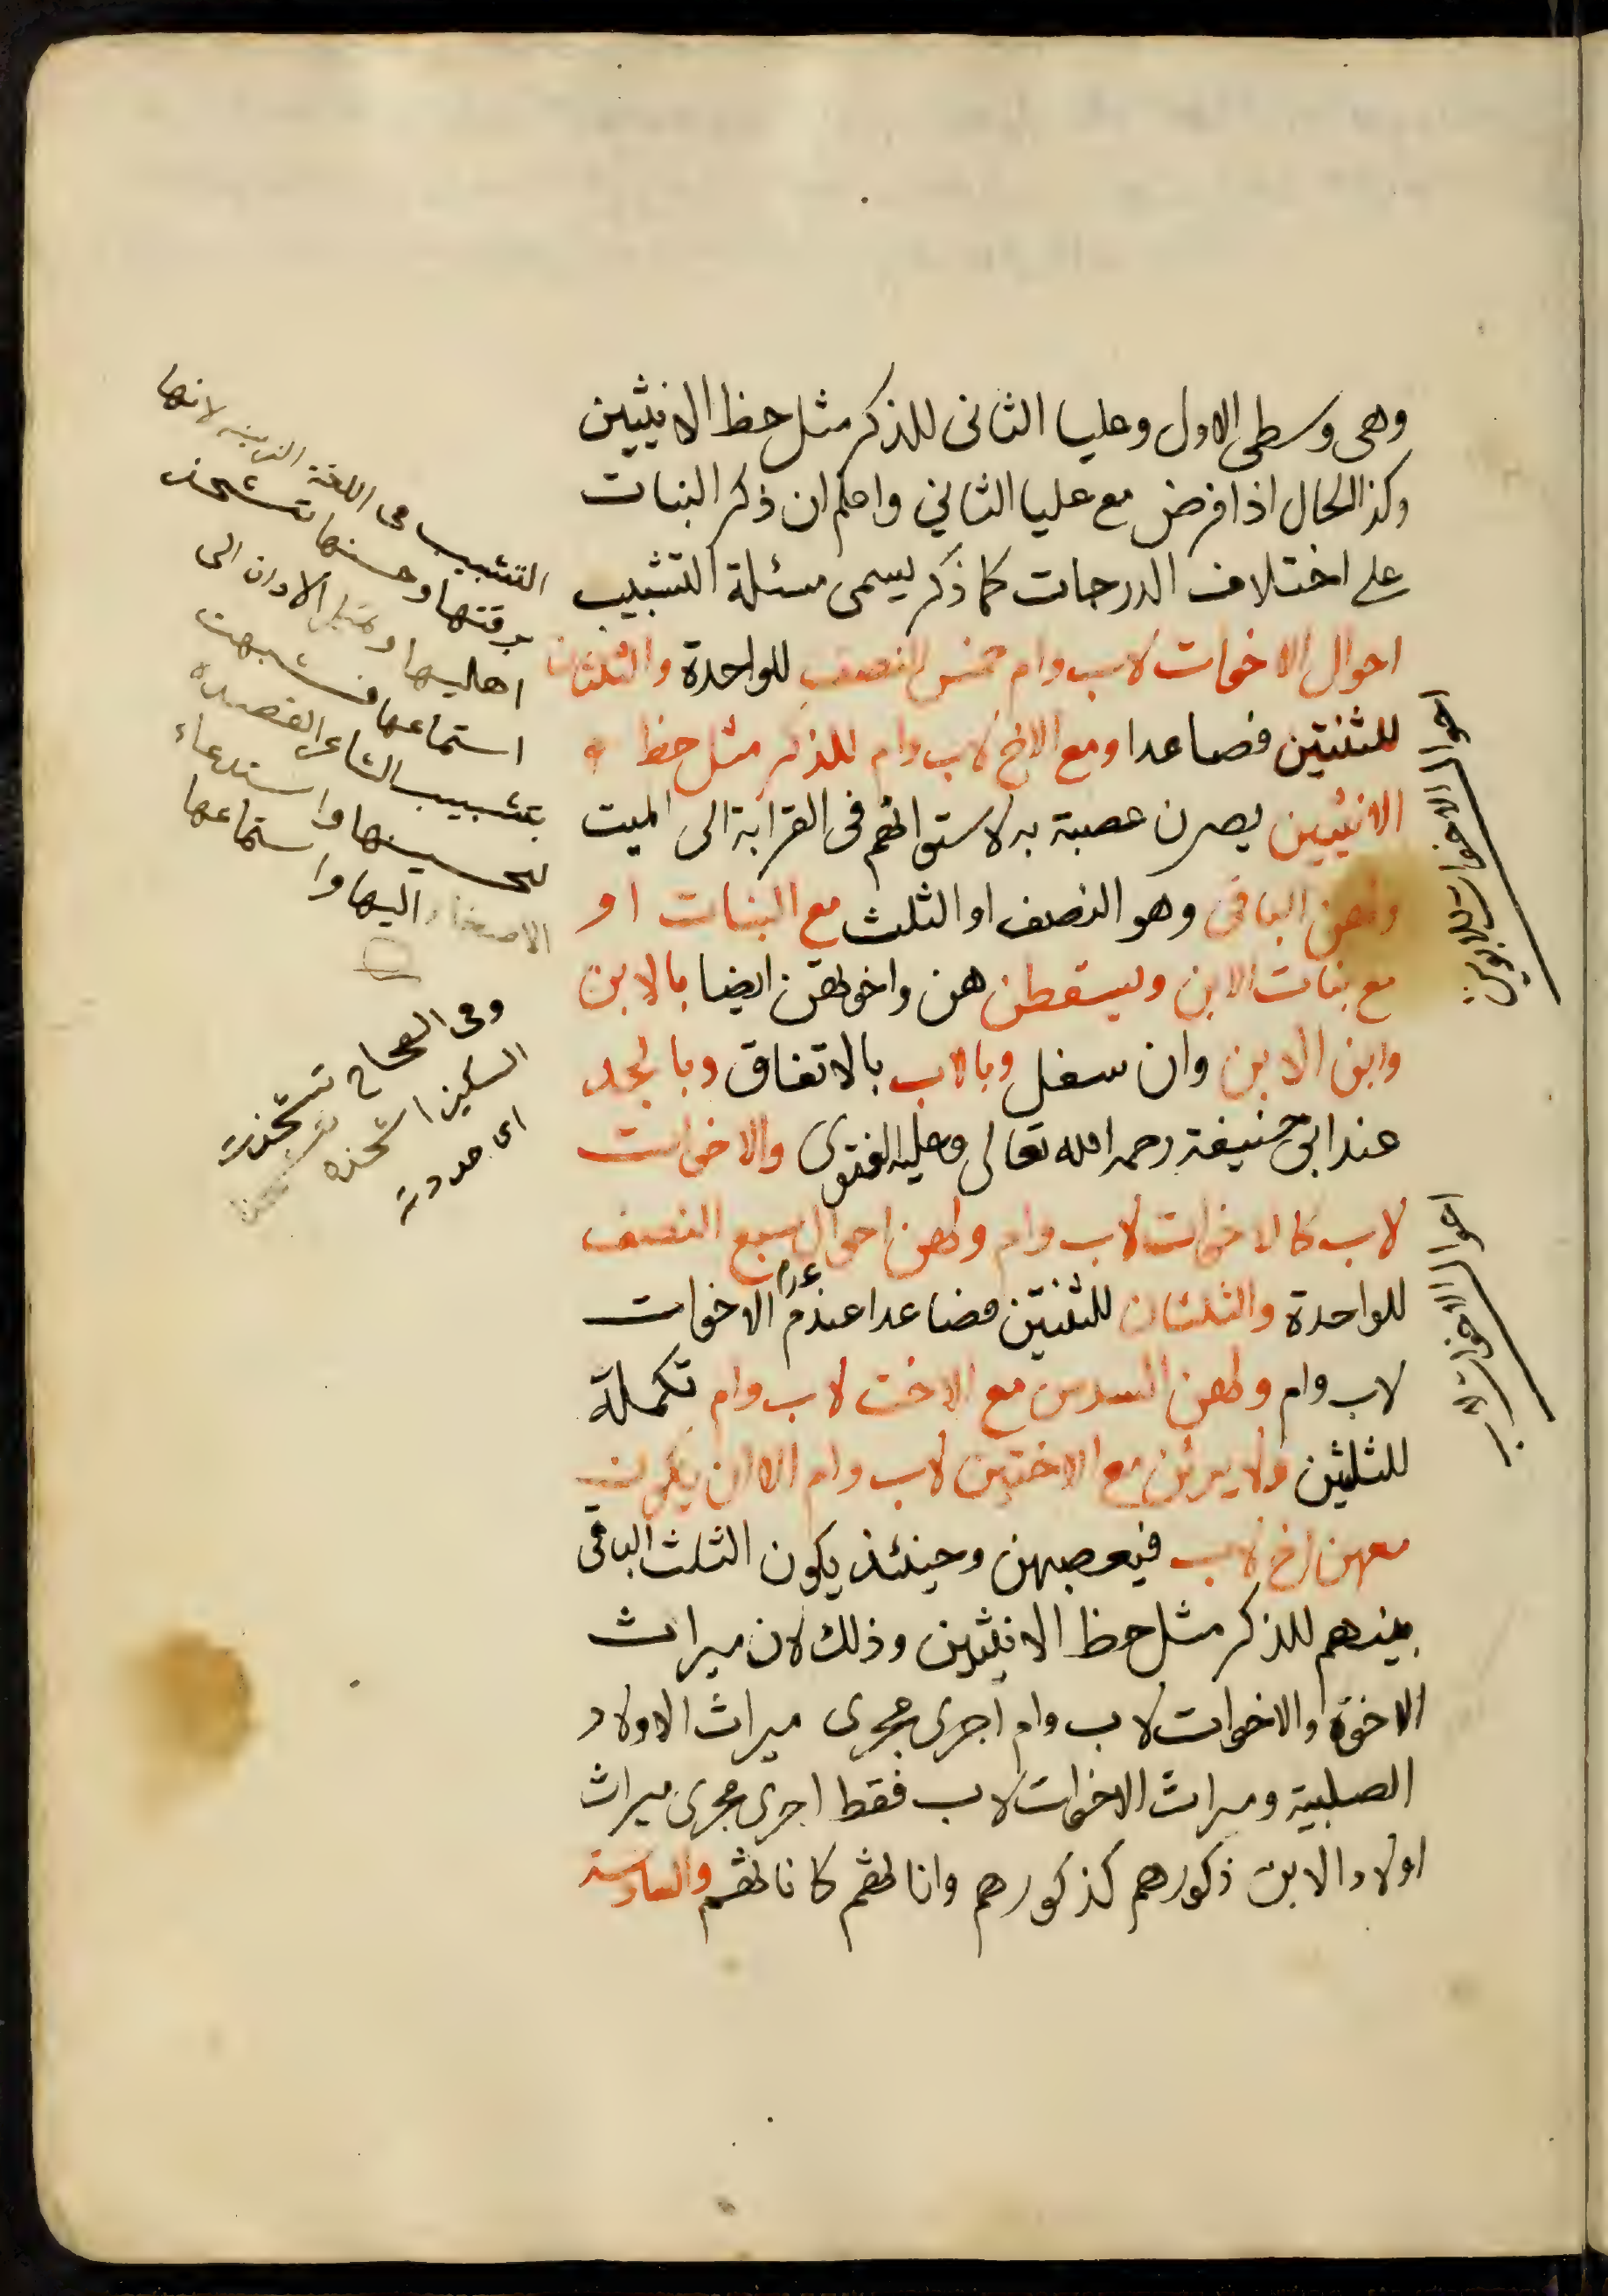 وهى وسطى الاول وعليا الثانى للذكر مثل حظ الانثيين
وكذا الحال اذا فرض مع عليا الثاني واعلم ان ذكر البنات
على اختلاف الدرجات كما ذكر يسمى مسئلة التشبيب
احوال الاخوات لاب وام خمس النصف للواحدة والثلثان
للثنتين فصاعدا ومع الاخ لاب وام للذكر مثل حظ
الانثيين يصرن عصبة به لاستوائهم فى القرابة الى الميت
ولهن الباقى وهو النصف او الثلث مع البنات او
مع بنات الابن ويسقطن هن واخوتهن ايضا بالابن
وابن الابن وان سفل وبالاب بالاتفاق وبالجد
عند ابى حنيفة رحمه الله تعالى وعليه الفتوى والاخوات
لاب كالاخوات لاب وام ولهن احوال سبع النصف
للواحدة والثلثان للثنتين فصاعدا عند عدم الاخوات
لاب وام ولهن السدس مع الاخت لاب وام تكملة
للثلثين ولا يرثن مع الاختين لاب وام الا ان يكون
معهن اخ لاب فيعصبهن وحينئذ يكون الثلث الباقى
بينهم للذكر مثل حظ الانثيين وذلك لان ميراث
الاخوة والاخوات لاب وام اجرى مجرى ميراث الاولاد
الصلبية وميراث الاخوات لاب فقط اجرى مجرى ميراث
اولاد الابن ذكورهم كذكورهم واناثهم كاناثهم والسادسة
احوال الاخوات للابوين
احوال الاخوات لاب
التشبيب فى اللغة التزيين لانها
برقتها وحسنها تشحذ
اهاليها وتميل الاذان الى
استماعها فشبهت
بتشبيب الشاعر القصيدة
لتحسينها واستدعاء
الاصغاء اليها واستماعها
وفى الصحاح شحذت
السكين اشحذه
اى حددته